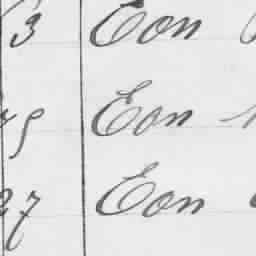 3 Eon
75 Eon
27 Eon